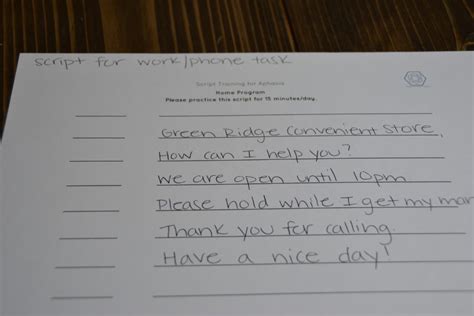 script for work/phone task
Script Training for Aphasia
Home Program
Please practice this script for 15 minutes/day.
Green Ridge Convenient Store,
How can I help you?
We are open until 10pm
Please hold while I get my mar
Thank you for calling.
Have a nice day!